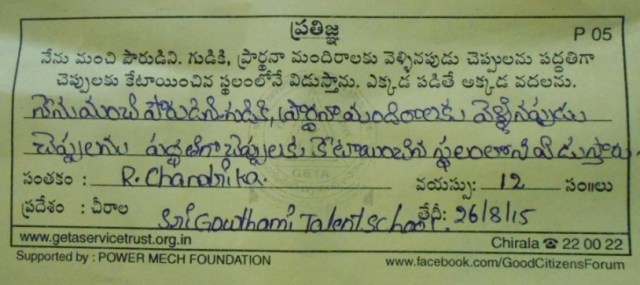 ప్రతిజ్ఞ
P 05
నేను మంచి పౌరుడిని. గుడికి, ప్రార్థనా మందిరాలకు వెళ్ళినపుడు చెప్పులను పద్ధతిగా
చెప్పులకు కేటాయించిన స్థలంలోనే విడుస్తాను. ఎక్కడ పడితే అక్కడ వదలను.
నేను మంచి పౌరుడిని గుడికి, ప్రార్థనా మందిరాలకు వెళ్ళినపుడు
చెప్పులను పద్ధతిగా చెప్పులకు కేటాయించిన స్థలంలోనే విడుస్తాను.
సంతకం : R. Chandrika. వయస్సు: 12 సం॥లు
ప్రదేశం : చీరాల Sri Gowthami Talent School. తేదీ: 26/8/15
www.getaservicetrust.org.in Chirala ☎ 22 00 22
Supported by : POWER MECH FOUNDATION www.facebook.com/GoodCitizensForum